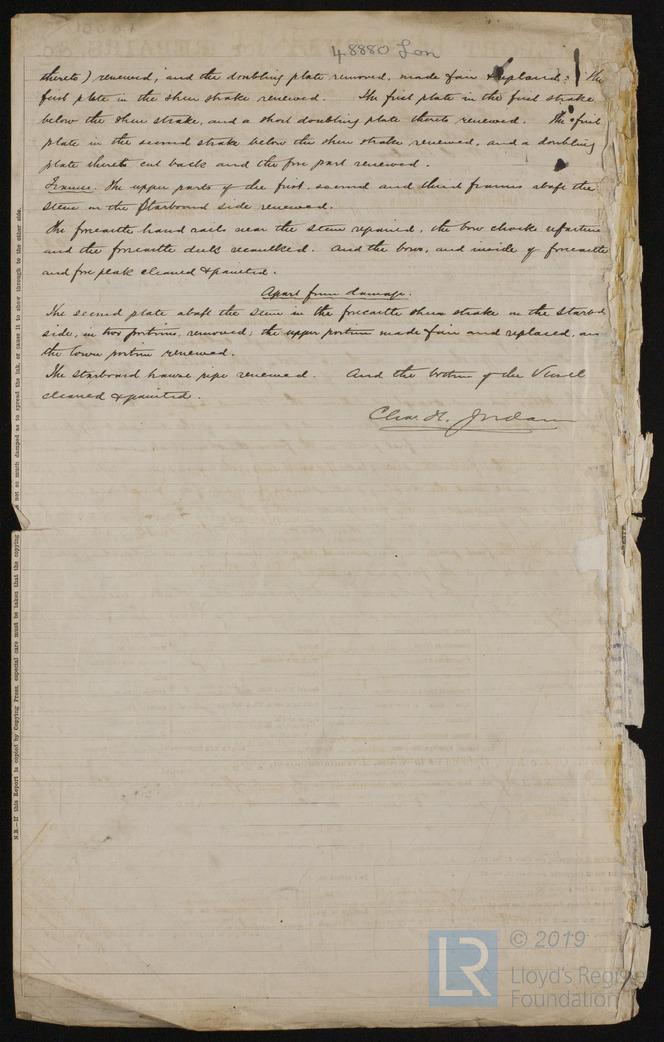 48880 Lon
thereto) renewed; and the doubling plate removed, made fair & replaced: The
first plate in the sheer strake renewed. The first plate in the first strake
below the sheer strake, and a short doubling plate thereto renewed. The first
plate in the second strake below the sheer strake renewed, and a doubling
plate thereto cut back and the fore part renewed.
Frames. The upper parts of the first, second and third frames abaft the
stem on the Starboard side renewed.
The forecastle hand rails near the stem repaired, the bow chocks refastened
and the forecastle deck recaulked. And the bows, and inside of forecastle
and fore peak cleaned & painted.
Apart from damage.
The second plate abaft the stem in the forecastle sheer strake on the Starbd
side, in two portions, removed; the upper portion made fair and replaced, an
the lower portion renewed.
The starboard hawse pipe renewed. And the bottom of the Vessel
cleaned & painted.
Chas. H. Jordan
N.B.—If this Report is copied by Copying Press, especial care must be taken that the copying
is not so much damped as to spread the ink, or cause it to show through to the other side.
LR
© 2019
Lloyd's Register
Foundation